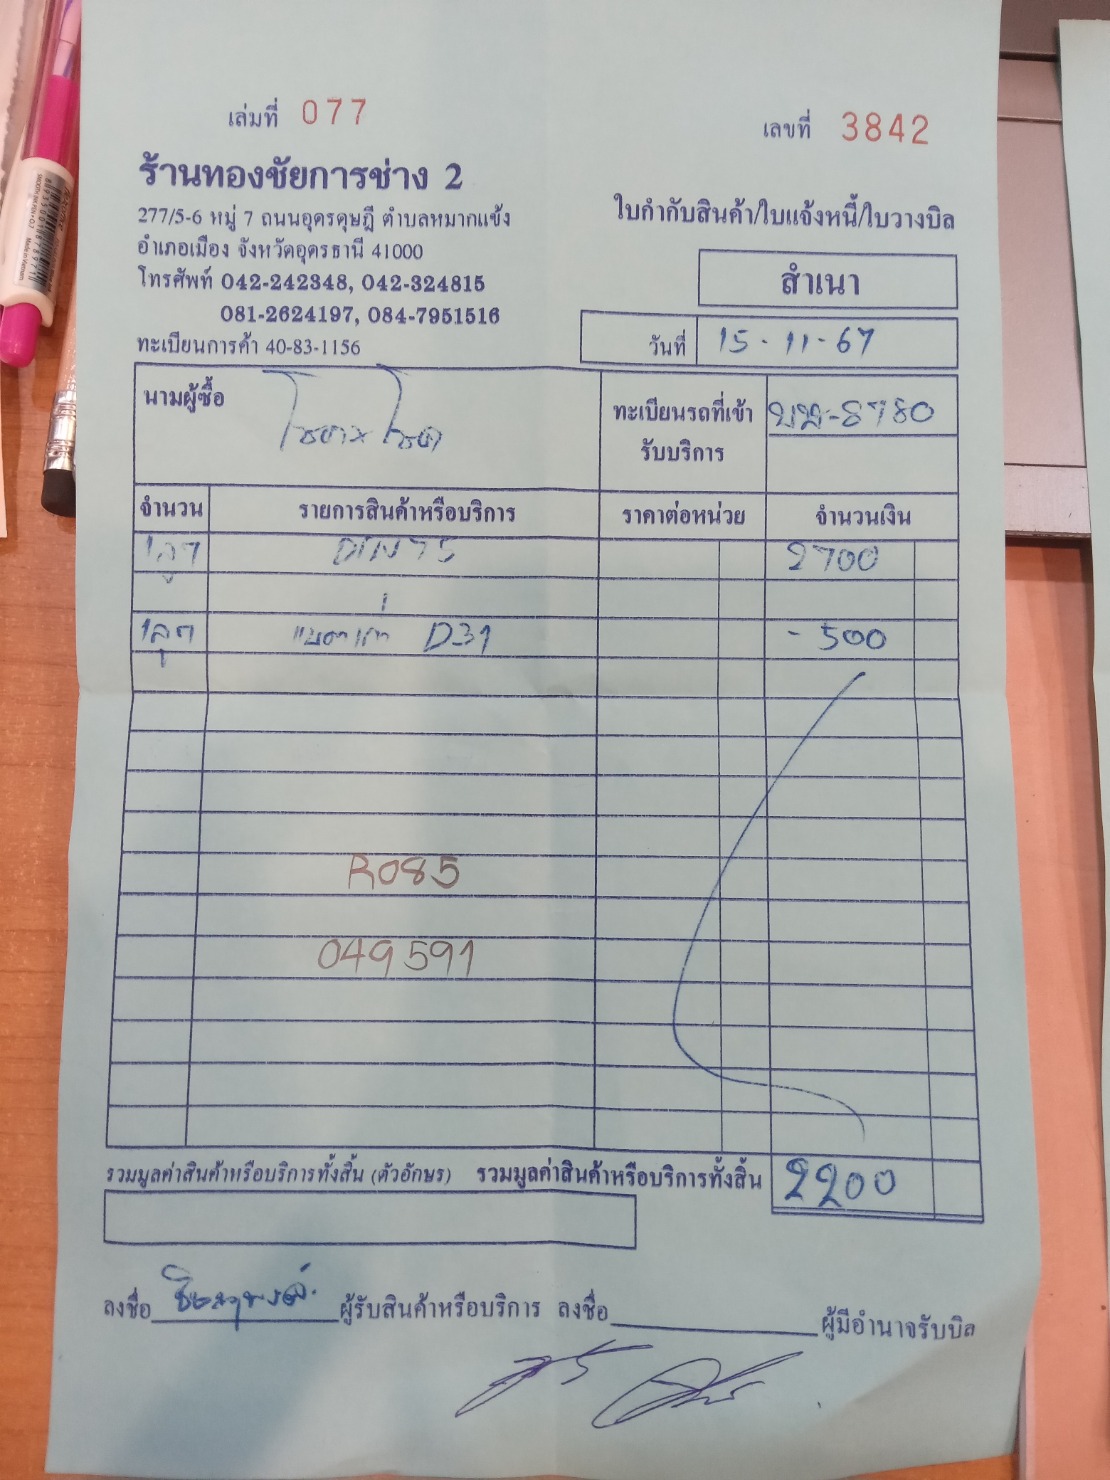 เล่มที่ 077
เลขที่ 3842
ร้านทองชัยการช่าง 2
277/5-6 หมู่ 7 ถนนอุดรดุษฎี ตำบลหมากแข้ง
อำเภอเมือง จังหวัดอุดรธานี 41000
โทรศัพท์ 042-242348, 042-324815
081-2624197, 084-7951516
ทะเบียนการค้า 40-83-1156
ใบกำกับสินค้า/ใบแจ้งหนี้/ใบวางบิล
สำเนา
วันที่ 15-11-67
นามผู้ซื้อ
ทะเบียนรถที่เข้า
รับบริการ
8780
จำนวน รายการสินค้าหรือบริการ ราคาต่อหน่วย จำนวนเงิน
1ลูก DIN75 2700
1ลูก แบตเก่า D31 -500
R085
049591
รวมมูลค่าสินค้าหรือบริการทั้งสิ้น (ตัวอักษร) รวมมูลค่าสินค้าหรือบริการทั้งสิ้น 2200
ลงชื่อ ผู้รับสินค้าหรือบริการ ลงชื่อ ผู้มีอำนาจรับบิล